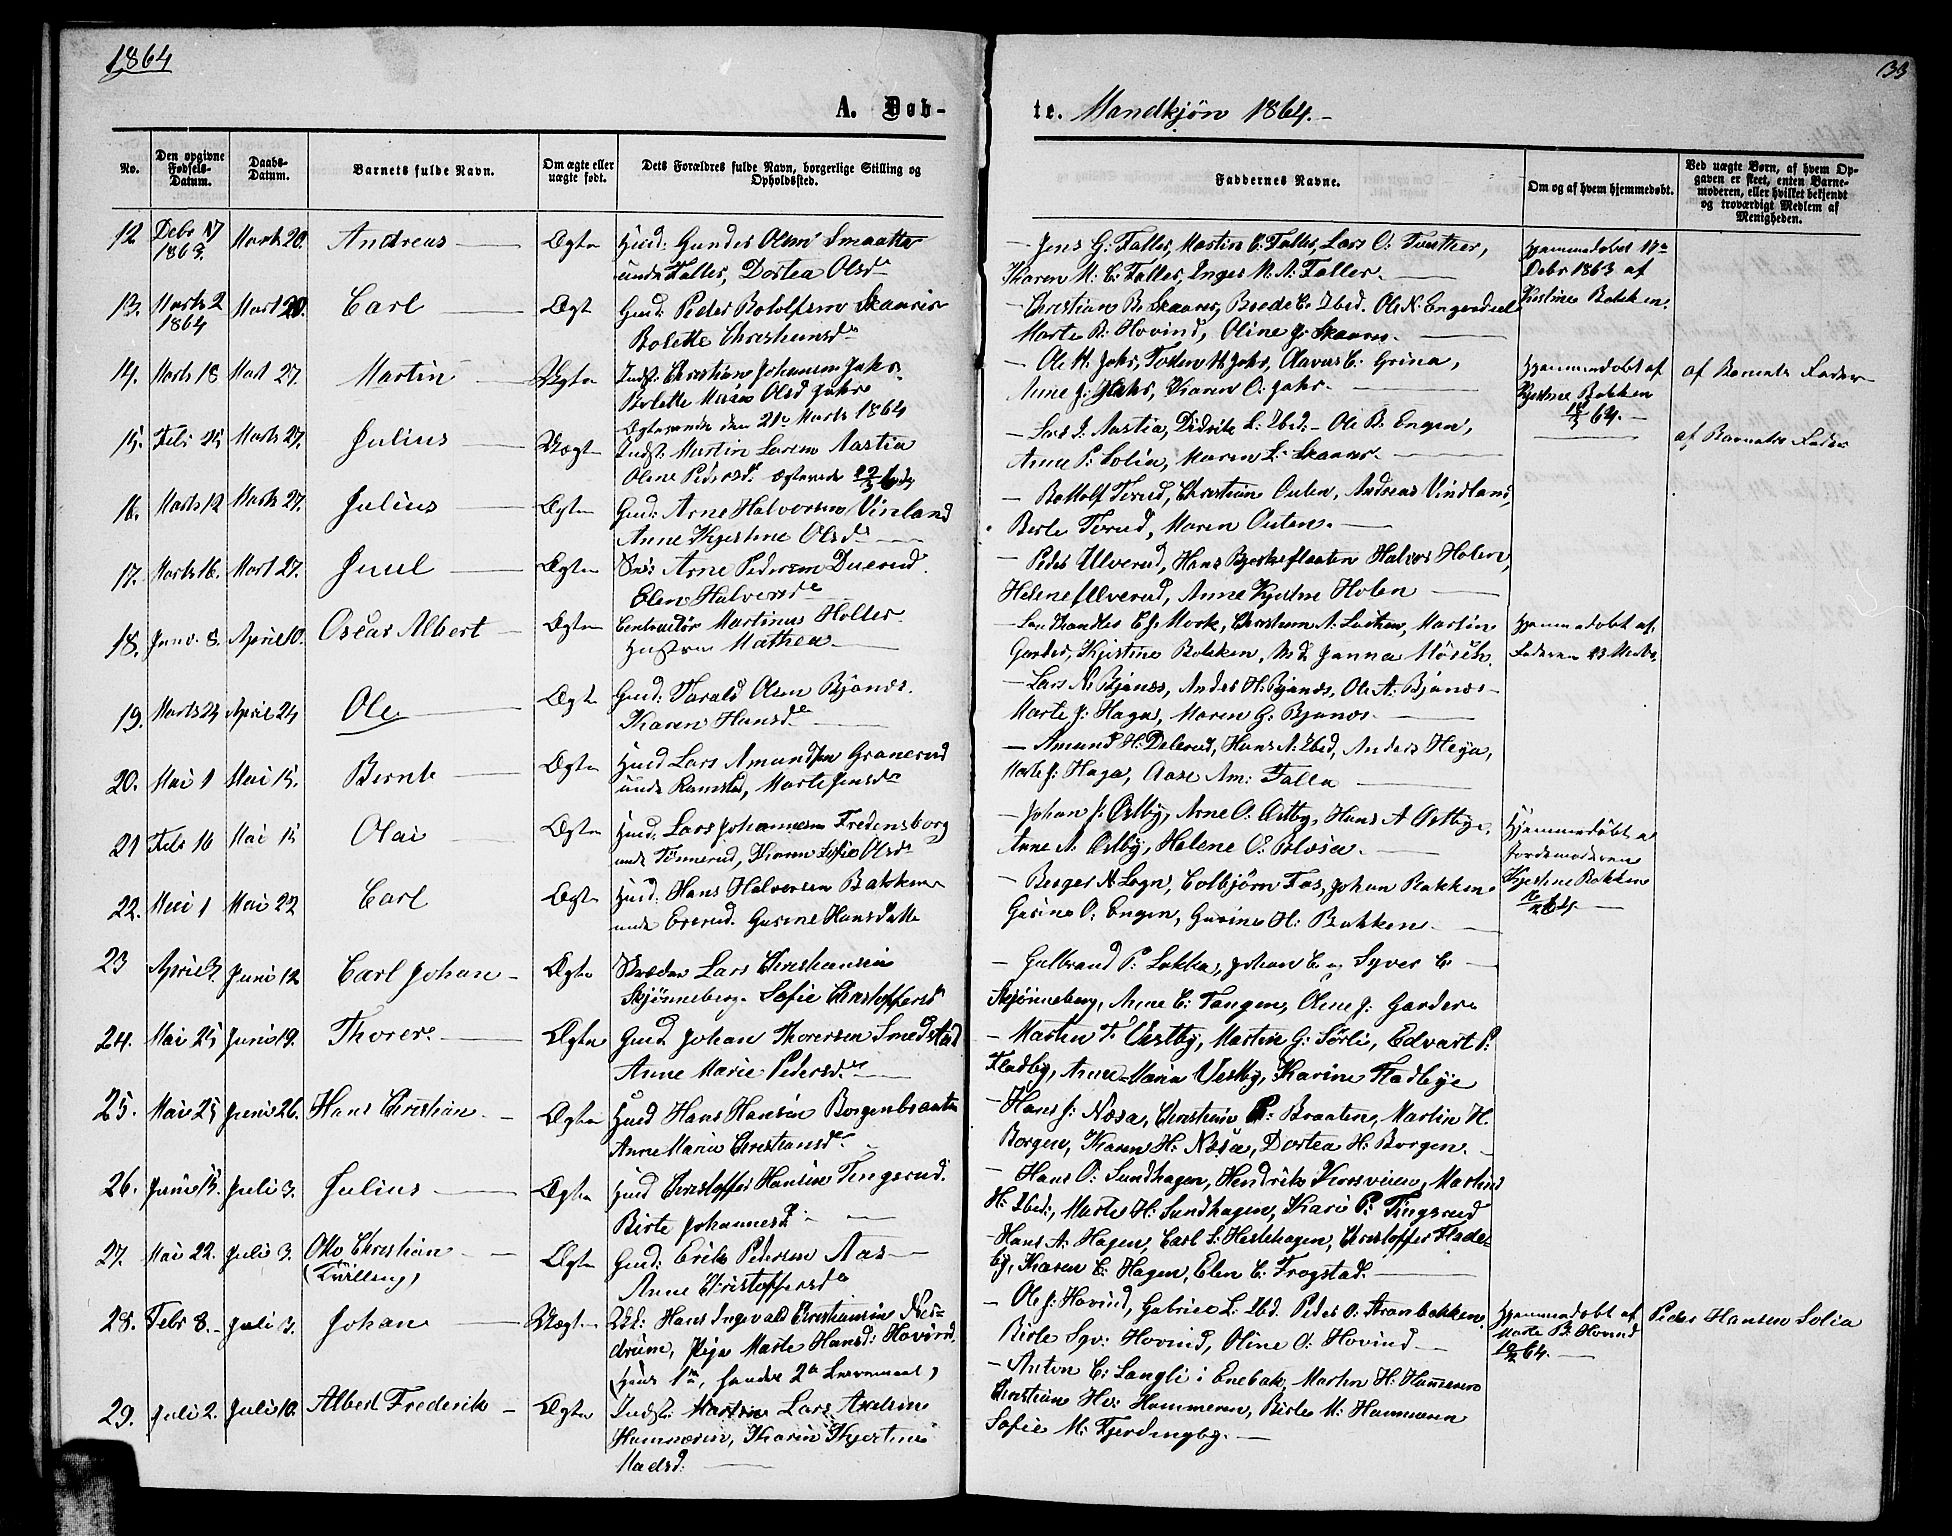 1864
33
A. Døb-
te. Mandkjøn 1864.-
No.
Den opgivne Fødsels-Datum.
Daabs-Datum.
Barnets fulde Navn.
Om ægte eller uægte født.
Dets Forældres fulde Navn, borgerlige Stilling og Opholdssted.
Faddernes Navne.
Om og af hvem hjemmedøbt.
Ved uægte Børn, af hvem Op-gaven er skeet, enten Barne-moderen, eller hvilket bekjendt og troværdigt Medlem af Menigheden.
12 Debr 17 1863. Marts 20. Andreas Ægte Huusm: Olsen
under Faller, Dortea Olsd
- Jens G: Faller, Martin C. Faller, Lars O:
Karen M: C. Faller, Inger N. A: Faller.
Hjemmedøbt 17de
Debr 1863 af
Kistine Bakken.
13. Marts 2 1864 Mart 20. Carl Ægte Gud: Peder Botolfsen Skaarer
Bolette Christiansd
- Christian B. Skaarer, Brede C. Ibid. Ole N. Engerdal
Marte B. Hovind, Oline J. Skaarer.
14. Marts 18 Mart 27. Martin Uægte Indst: Christian Johansen Jahr.
Bolette Olsd Jahr
Ægteviede den 21de Marts 1864
- Ole H. Jahr, Torsten H Jahr, Olavus C. Grina,
Anne J: Jahr, Karen O. Jahr.
Hjemmedøbt af
Kjestine Bakken
18/3 64.
af Barnets Fader
15. Febr 25 Marts 27. Julius Uægte Indst: Martin Larsen Aastia
Oline Pedersd. Ægteviede
- Lars J. Aastia, Didrik L. Ibid- Ole B. Engen,
Anne P. Solia, Maren L. Skaarer.
af Barnets Fader
16. Marts 12 Marts 27. Julius Ægte Gud: Arne Halvorsen Vinland
Anne Kjestine Olsd
- Botolf Terud, Christian Outen, Andreas Vindland,
Berte Terud, Maren Outen.
17. Marts 16. Mart 27. Juul Ægte Arne Pedersen Duerud.
Elen Halversd
- Peder Ulverud, Hans Halvor Holen,
Helene Ulverud, Anne Kjestine Holen
18. Janv. 8. April 10. Oscar Albert Ægte Contractør Martinus Holter
Hustru Mathea.
Mork, Christian A. Martin
Garder, Kjistine Bakken, Janna
Hjemmedøbt af
Faderen
19. Marts 24 April 24 Ole Ægte Gud: Tarald Olsen Bjønnes.
Karen Hansd
- Lars N. Bjønnes, Anders H. Bjønnes, Ole A. Bjønnes
Marte J: Haga, Maren G. Bjønnes.
20. Mai 1 Mai 15. Bernt Ægte Huusm Lars Amundsen Granerud
under Ramstad, Marte Jensd
- Amund H. Delerud, Hans A. Ibid, Anders Heya,
Marte J: Haga, Aase Am: Falla
21 Febr 16 Mai 15 Olai Ægte Huusm: Lars Johannesen Fredensborg
under Tønnerud, Karen Sofie Olsd
- Johan J. Østby, Arne O. Østby, Hans A Østbye,
Anne A. Østby, Helene O.
Hjemmedøbt af
Jordemoderen
Kjestine Bakken
22. Mai 1 Mai 22 Carl Ægte Huusm: Hans Halvorsen Bakken
under Gusine Hansdatte
- Berger N. Colbjørn Johan Bakken
Gusine O. Engen, Gusine H: Bakken.
23 April 3. Juni 12 Carl Johan Ægte Skræder Lars Christiansen
Skjønneberg. Sofie Christoffersd
- Gulbrand P. Løkka, Johan C. og Syver C.
Skjønneberg, Anne C. Tangen, Oline J. Garder
24. Mai 25 Juni 19. Thorer Ægte Gud. Johan Thorersen Smedstad
Anne Marie Pedersd.
- Martin T. Vestby, Martin G. Sørli, Edvart P.
Fladby, Anne-Maria Vestby, Karine Fladbye
25. Mai 25 Juni 26. Hans Christian. Ægte Huusm Hans Hansen Borgenbraaten
Anne Marie Christiansd.
- Hans J: Næsa, Christian P: Braaten, Martin H.
Borgen, Karen H: Næsa, Dortea H: Borgen.
26. Juni 15. Juli 3. Julius Ægte Huusm Christoffer Hansen Tingsrud.
Birte Johannesd
- Hans O: Sundhagen, Hendrik Korsveien, Martin
H. Ibid:, Marte H. Sundhagen, Kari P. Tingsrud
27. Mai 22. Juli 3. Otto Christian
(Tvilling) Ægte Gud: Erik Pedersen Aas
Anne Christoffersd
- Hans A: Hagen, Carl S. Hestehagen, Christoffer Flade-
by, Karen C. Hagen, Elen C. Frogstad.
28. Febr 8. Juli 3. Johan Uægte Hans Ingevald Christiansen
Pige Marte Hansd: Hovind
- Ole J: Hovind, Gabriel L. Ibd. Peder O.
Berte Syv: Hovind, Oline O. Hovind
Hjemmedøbt af
Marte B. Hovind
64.
Peder Hansen Solia
29. Juli 2. Juli 10. Albert Frederik Ægte Indst: Lars Axelsen
Hammeren, Karen Kjerstine
Madsd:
- Anton C: Langli i Enebak, Martin H. Hammeren
Christian Hammeren, Berte M: Hammeren
Sofie M: Fjerdingby.